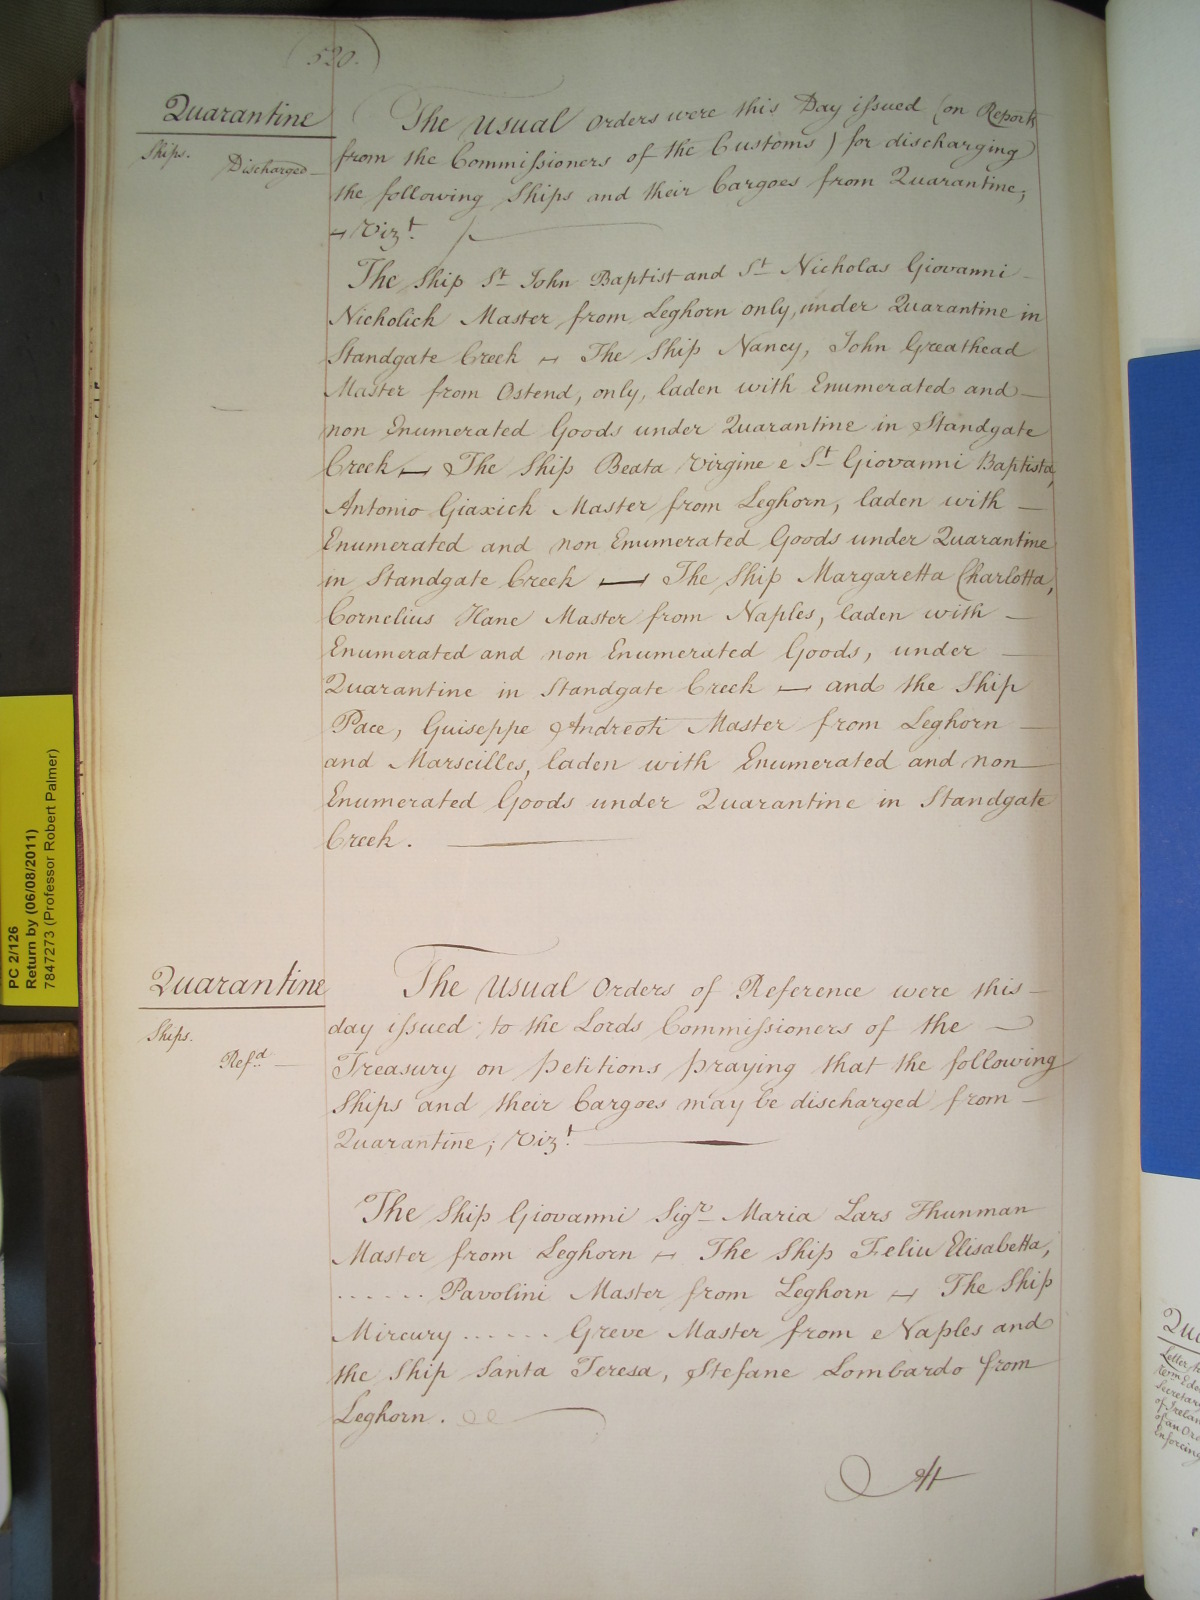 (530.)
Quarantine
Ships.
Discharged
The Usual Orders were this Day issued (on Report
from the Commissioners of the Customs) for discharging
the following Ships and their Cargoes from Quarantine,
Vizt.
The Ship St. John Baptist and St. Nicholas Giovanni
Nicholick Master from Leghorn only, under Quarantine in
Standgate Creek — The Ship Nancy, John Greathead
Master from Ostend, only, laden with Enumerated and
non Enumerated Goods under Quarantine in Standgate
Creek — The Ship Beata Virgine e St. Giovanni Baptista,
Antonio Giaxick Master from Leghorn, laden with
Enumerated and non Enumerated Goods under Quarantine
in Standgate Creek — The Ship Margaretta Charlotta,
Cornelius Hane Master from Naples, laden with
Enumerated and non Enumerated Goods, under
Quarantine in Standgate Creek — and the Ship
Pace, Guiseppe Andreoti Master from Leghorn
and Marseilles, laden with Enumerated and non
Enumerated Goods under Quarantine in Standgate
Creek.
Quarantine
Ships.
Refd.
The Usual Orders of Reference were this
day issued to the Lords Commissioners of the
Treasury on petitions praying that the following
Ships and their Cargoes may be discharged from
Quarantine; Vizt.
The Ship Giovanni Sigre. Maria Lars Thunman
Master from Leghorn — The Ship Feliu Elisabetta,
...... Pavolini Master from Leghorn — The Ship
Mircury ...... Greve Master from Naples and
the Ship Santa Teresa, Stefane Lombardo from
Leghorn.
At
PC 2/126
Return by (06/08/2011)
7847273 (Professor Robert Palmer)
Letter
Secretary
of an
Enforcing